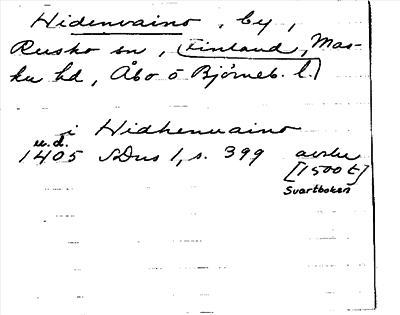 Hidenvaino, by,
Rusko sn, (Finland, Mas-
ku hd, Åbo o Bjørneb. l.)
i Hidhenvaino
u.d.
1405 SDns 1, s. 399 avskr
[1500 t]
Svartboken